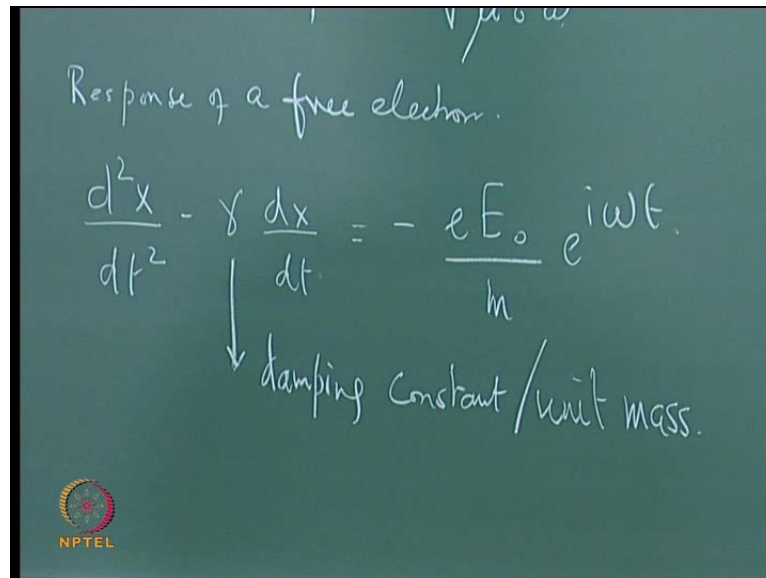 Response of a free electron.
d²x/dt² - γ dx/dt = - eE₀/m e^{iωt}.
damping constant/unit mass.
NPTEL